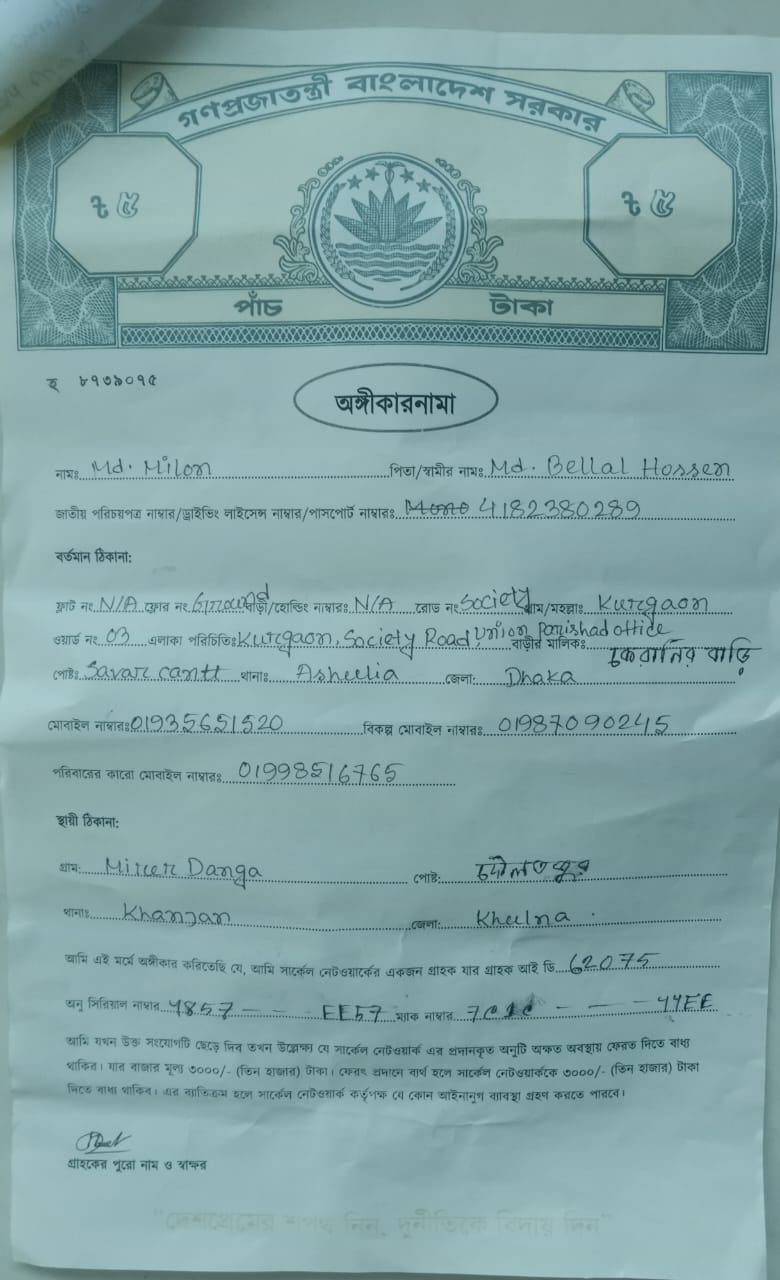 গণপ্রজাতন্ত্রী বাংলাদেশ সরকার
৳ ৫ ৳ ৫
পাঁচ টাকা
হ ৮৭৩৯০৭৫
অঙ্গীকারনামা
নামঃ Md. Milon পিতা/স্বামীর নামঃ Md. Bellal Hossen
জাতীয় পরিচয়পত্র নাম্বার/ড্রাইভিং লাইসেন্স নাম্বার/পাসপোর্ট নাম্বারঃ 4182380289
বর্তমান ঠিকানা:
ফ্লাট নং N/A ফ্লোর নং Ground বাড়ী/হোল্ডিং নাম্বারঃ N/A রোড নং Society গ্রাম/মহল্লাঃ Kurgaon
ওয়ার্ড নং 03 এলাকা পরিচিতিঃ Kurgaon, Society Road, Union Porishad office বাড়ীর মালিকঃ কেরানির বাড়ি
পোষ্টঃ Savar cantt থানাঃ Asheelia জেলা: Dhaka
মোবাইল নাম্বারঃ 01935651520 বিকল্প মোবাইল নাম্বারঃ 01987090245
পরিবারের কারো মোবাইল নাম্বারঃ 01998516765
স্থায়ী ঠিকানা:
গ্রাম: Mirer Danga পোষ্ট: দৌলতপুর
থানাঃ Khanjan জেলা: Kheelna
আমি এই মর্মে অঙ্গীকার করিতেছি যে, আমি সার্কেল নেটওয়ার্কের একজন গ্রাহক যার গ্রাহক আই ডি 62075
অনু সিরিয়াল নাম্বার 4857 - - EE57 ম্যাক নাম্বার - - - 44EE
আমি যখন উক্ত সংযোগটি ছেড়ে দিব তখন উল্লেখ্য যে সার্কেল নেটওয়ার্ক এর প্রদানকৃত অনুটি অক্ষত অবস্থায় ফেরত দিতে বাধ্য
থাকিব। যার বাজার মূল্য ৩০০০/- (তিন হাজার) টাকা। ফেরৎ প্রদানে ব্যর্থ হলে সার্কেল নেটওয়ার্ককে ৩০০০/- (তিন হাজার) টাকা
দিতে বাধ্য থাকিব। এর ব্যতিক্রম হলে সার্কেল নেটওয়ার্ক কর্তৃপক্ষ যে কোন আইনানুগ ব্যবস্থা গ্রহণ করতে পারবে।
গ্রাহকের পুরো নাম ও স্বাক্ষর
"দেশপ্রেমের শপথ নিন, দুর্নীতিকে বিদায় দিন"